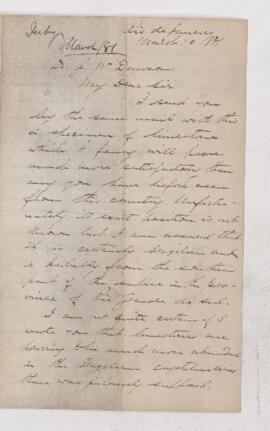 Derby
Rio de Janeiro
March/81
March 10 81
Dr. J. Wm Dawson
My Dear Sir
I send you
by the same mail with this
a specimen of limestone
which I fancy will prove
much more satisfactory than
any you have before seen
from this country. Unfortu-
nately its exact position is not
known but I am assured that
it is certainly and
is probably from the southern
part of the empire in the pro-
vince of Rio Grande do Sul.
I am not quite certain if I
wrote you that limestones are
proving to be much more abundant
in the crystallines
than was previously supposed.